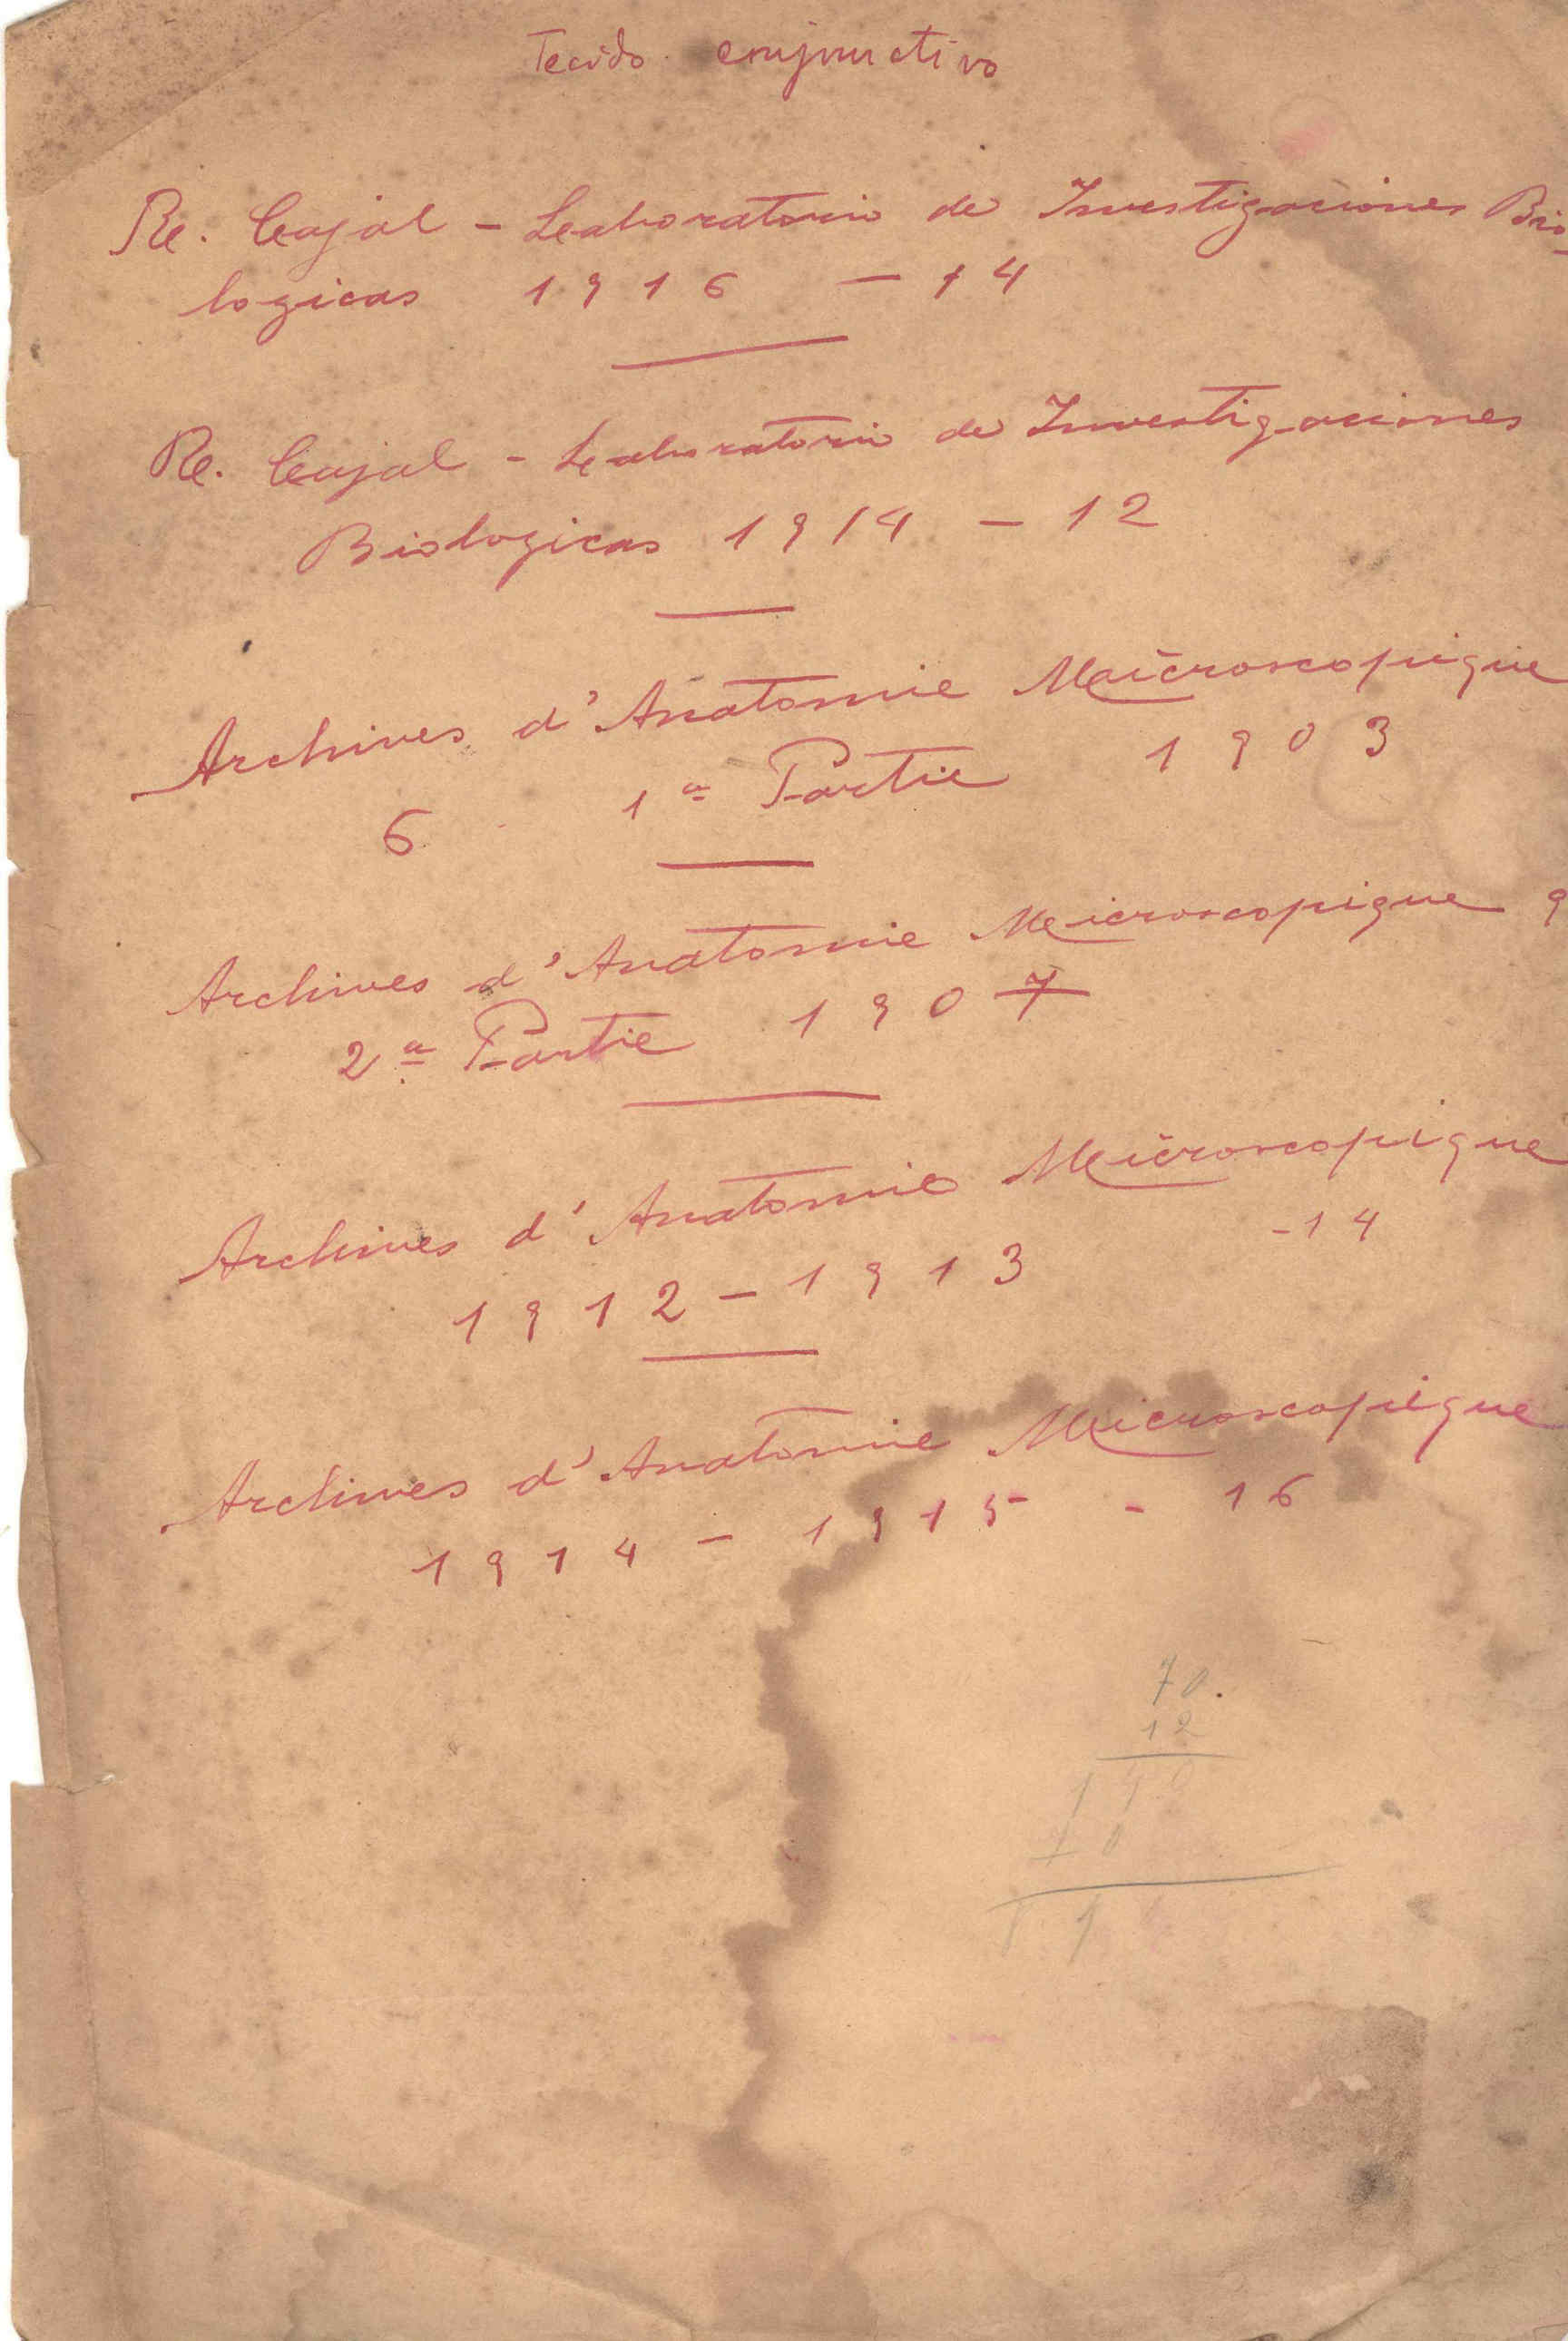 Tecido conjunctivo
R. Cajal - Laboratorio de Investigaciones Bio-
logicas 1916 - 14
R. Cajal - Laboratorio de Investigaciones
Biologicas 1914 - 12
Archives d'Anatomie Microscopique
6 1ª Partie 1903
Archives d'Anatomie Microscopique 9
2ª Partie 1907
Archives d'Anatomie Microscopique
1912-1913 -14
Archives d'Anatomie Microscopique
1914 - 1915 - 16
70
12
140
70